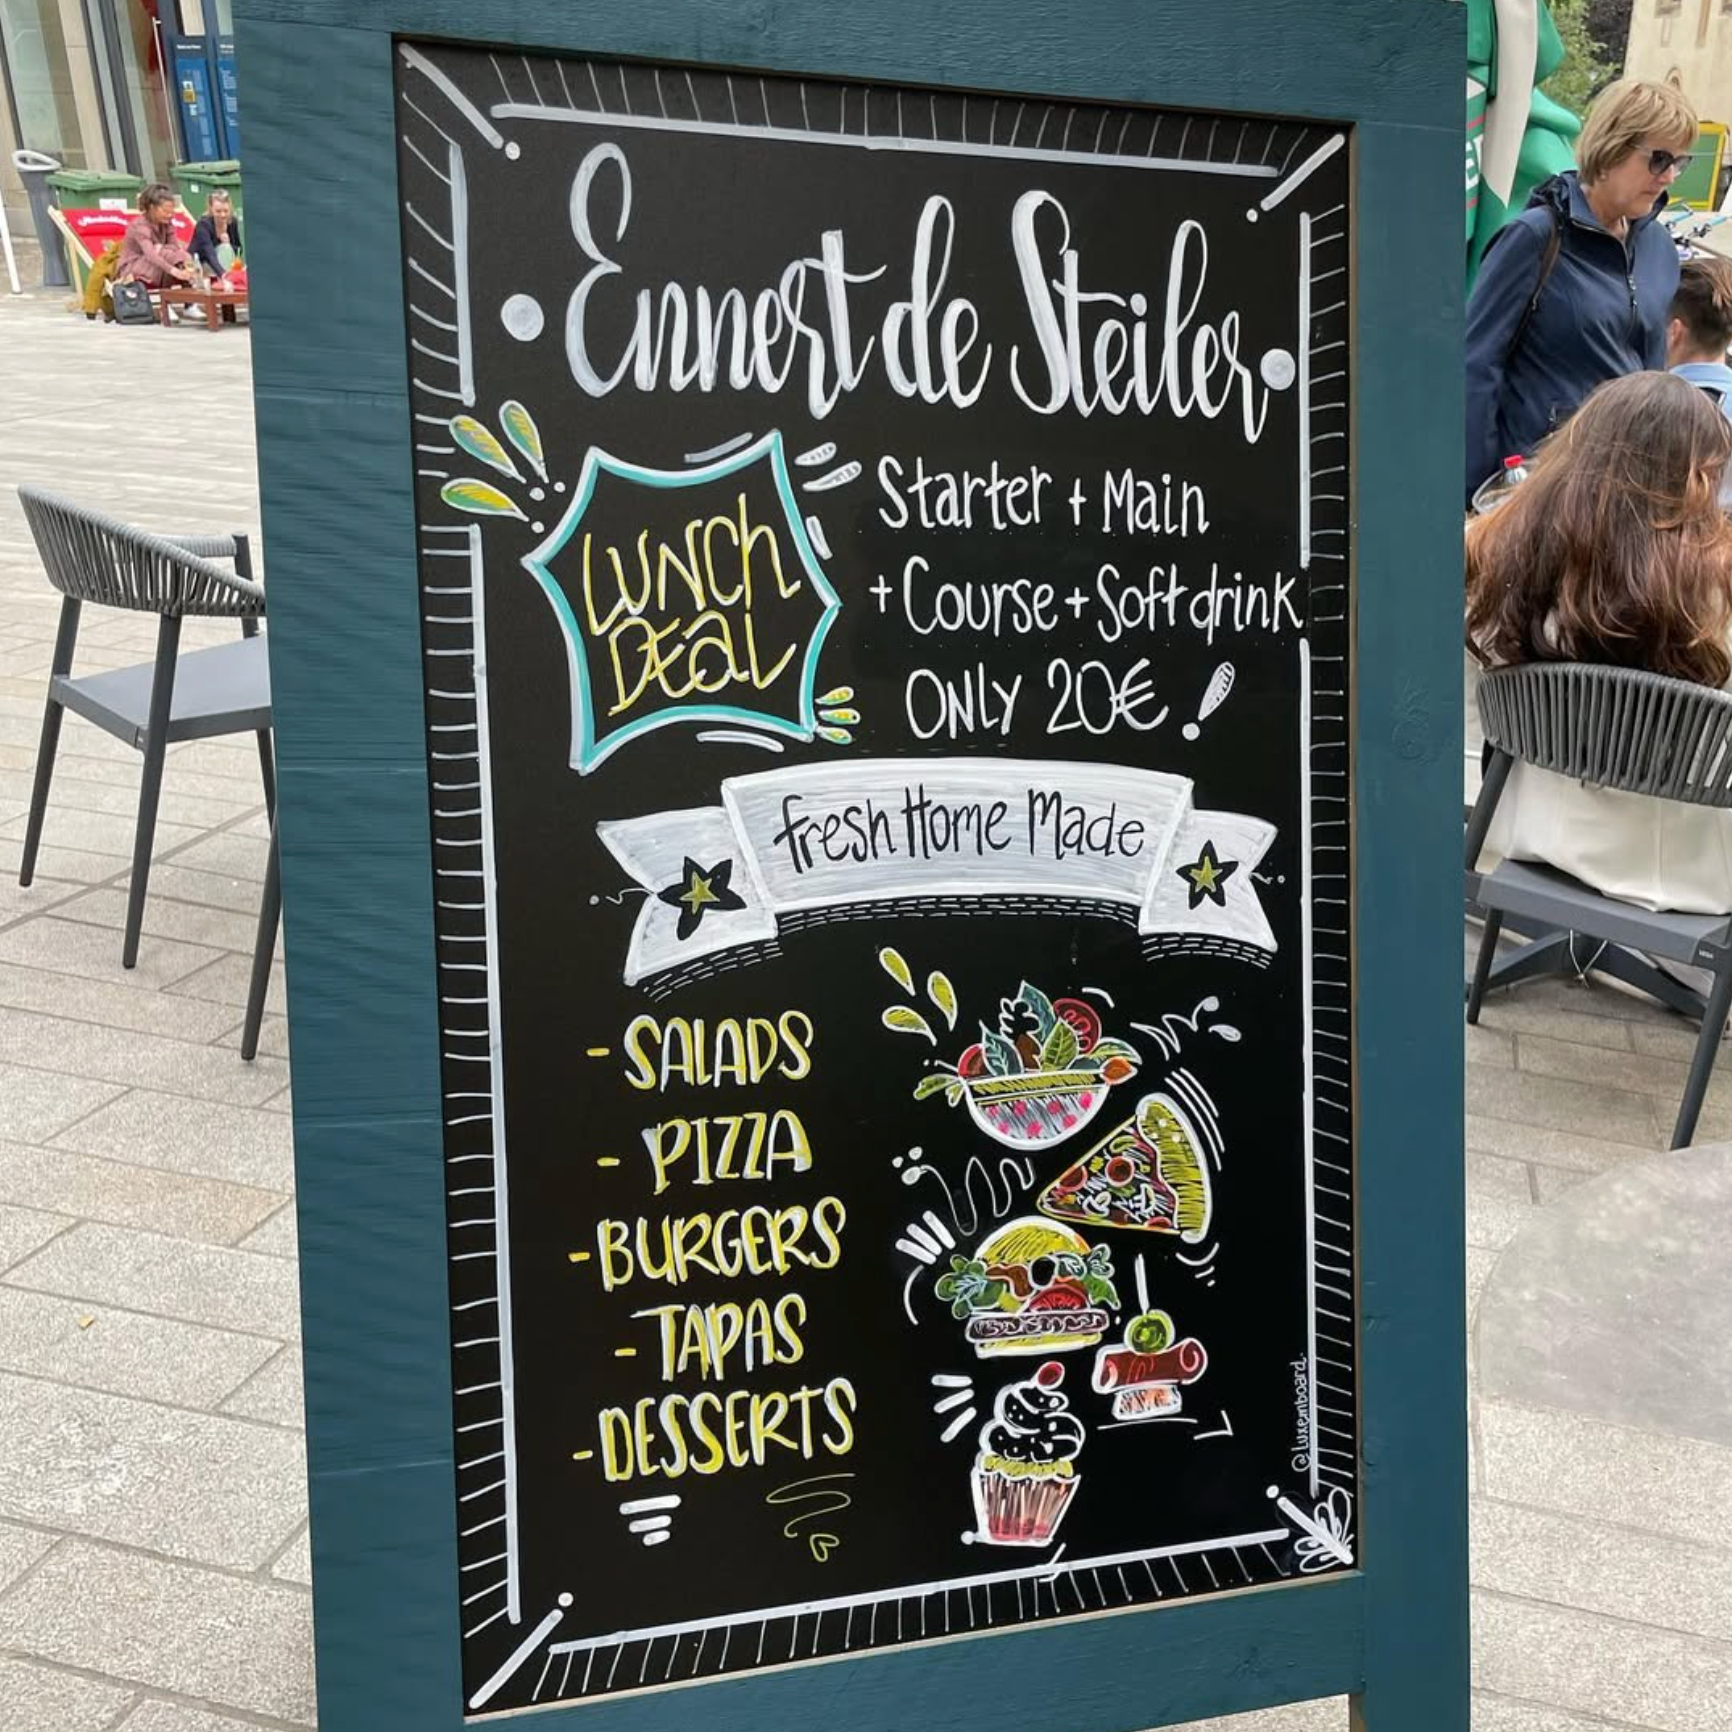 Ennert de Steiler
LUNCH
DEAL
Starter + Main
+ Course + Soft drink
ONLY 20€ !
fresh Home Made
- SALADS
- PIZZA
- BURGERS
- TAPAS
- DESSERTS
@Luxemboard